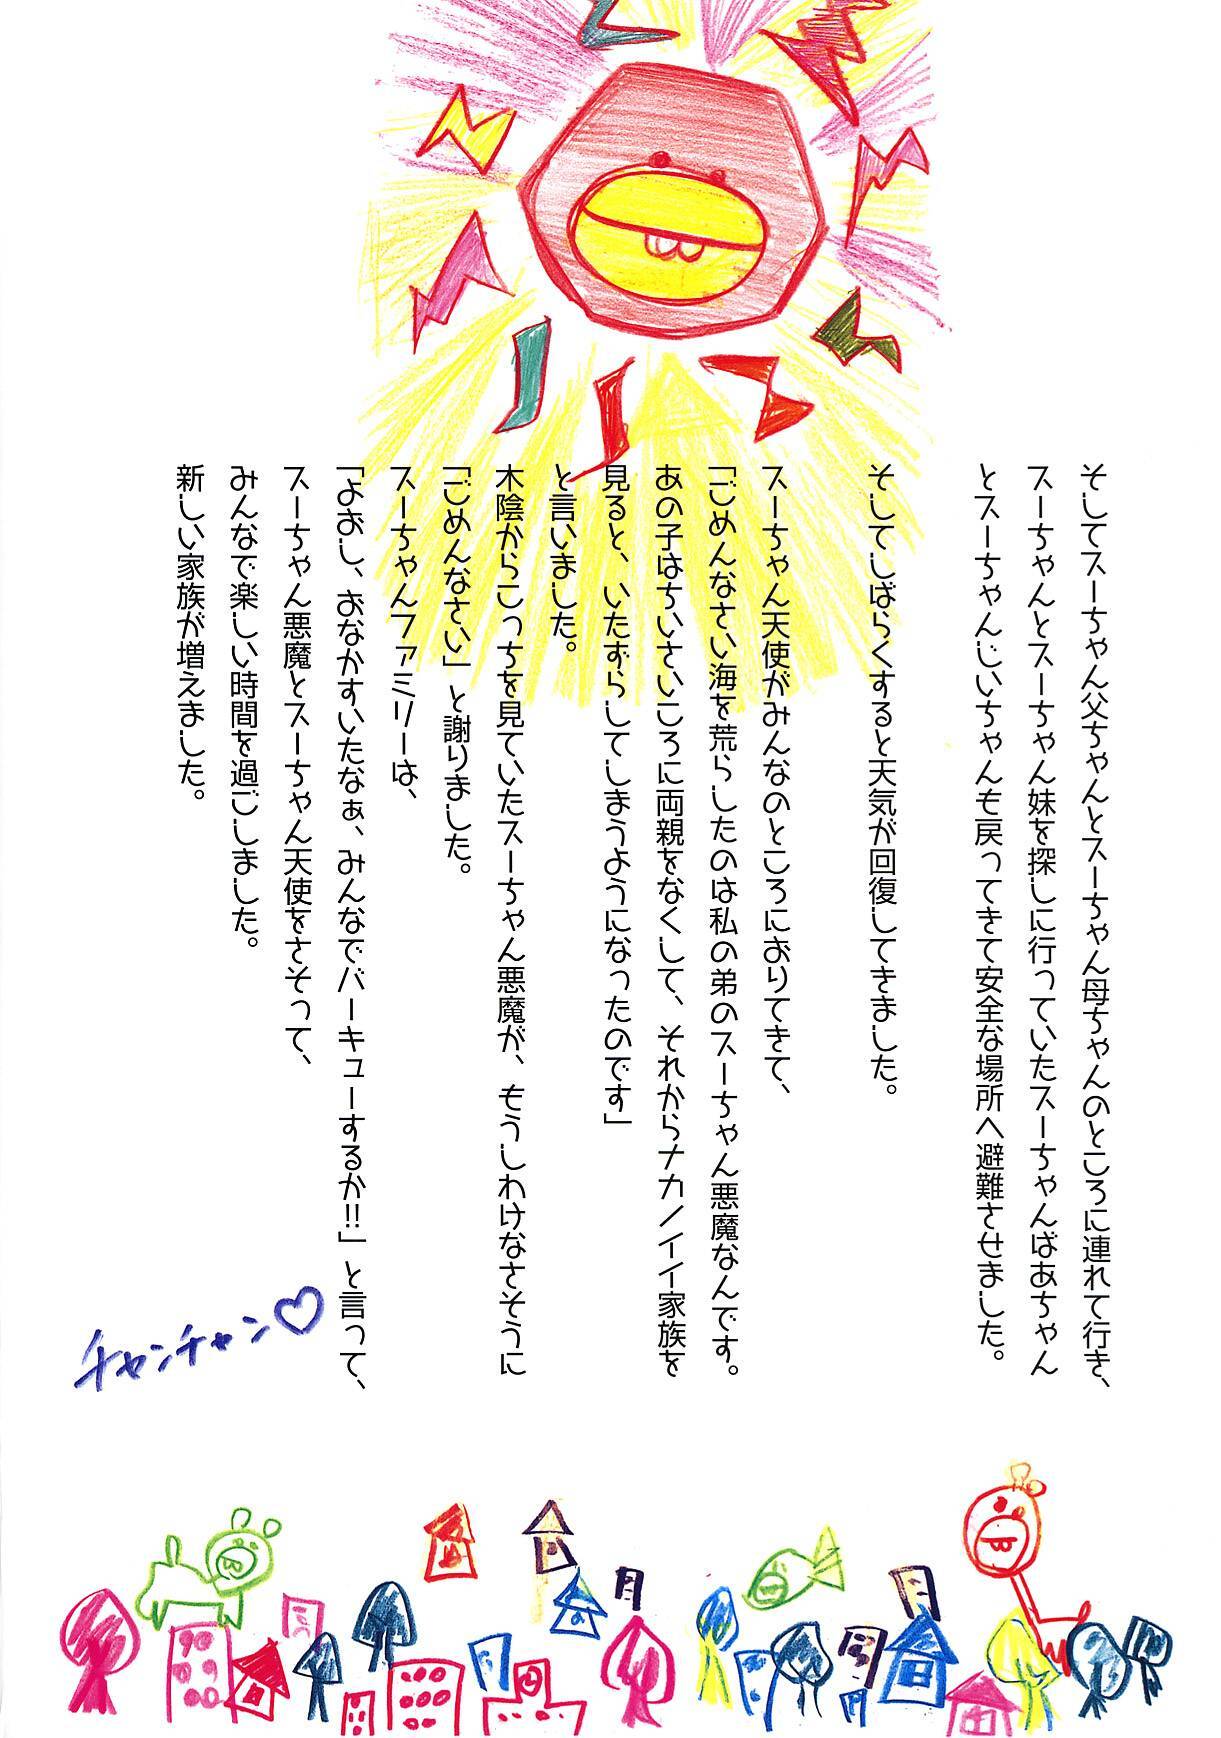 そしてスーちゃん父ちゃんとスーちゃん母ちゃんのところに連れて行き、
スーちゃんとスーちゃん妹を探しに行っていたスーちゃんばあちゃん
とスーちゃんじいちゃんも戻ってきて安全な場所へ避難させました。
そしてしばらくすると天気が回復してきました。
スーちゃん天使がみんなのところにおりてきて、
「ごめんなさい海を荒らしたのは私の弟のスーちゃん悪魔なんです。
あの子はちいさいころに両親をなくして、それからナカノイイ家族を
見ると、いたずらしてしまうようになったのです」
と言いました。
木陰からこっちを見ていたスーちゃん悪魔が、もうしわけなさそうに
「ごめんなさい」と謝りました。
スーちゃんファミリーは、
「よおし、おなかすいたなぁ、みんなでバーキューするか!!」と言って、
スーちゃん悪魔とスーちゃん天使をさそって、
みんなで楽しい時間を過ごしました。
新しい家族が増えました。
チャンチャン♡